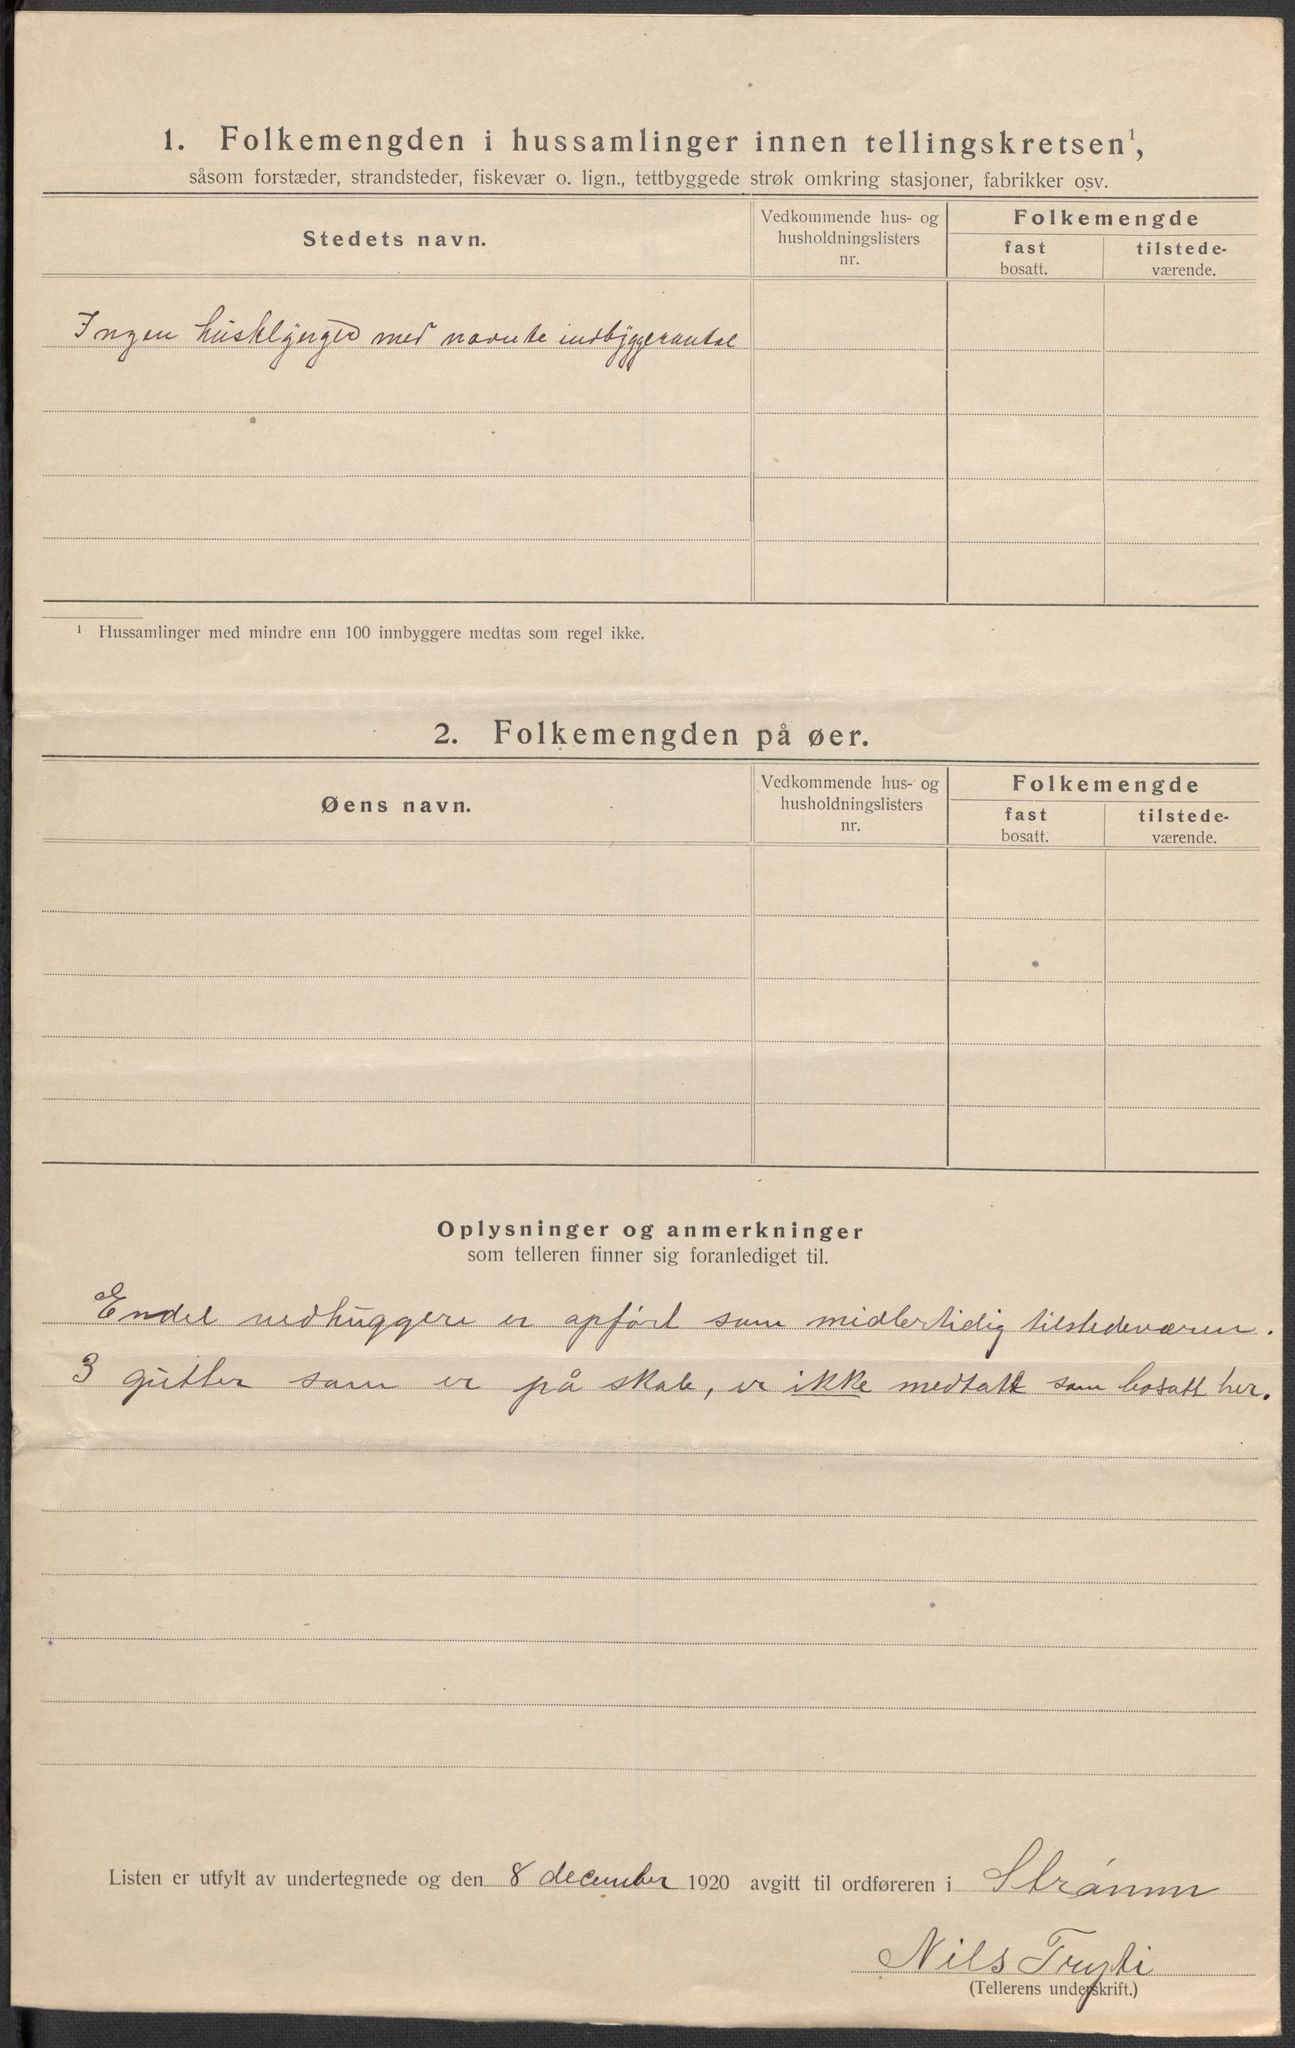 1. Folkemengden i hussamlinger innen tellingskretsen¹,
såsom forstæder, strandsteder, fiskevær o. lign., tettbyggede strøk omkring stasjoner, fabrikker osv.
Stedets navn.
Vedkommende hus- og
husholdningslisters
nr.
Folkemengde
fast
bosatt.
tilstede-
værende.
Ingen husklynger med nævnte indbyggerantal
¹ Hussamlinger med mindre enn 100 innbyggere medtas som regel ikke.
2. Folkemengden på øer.
Øens navn.
Vedkommende hus- og
husholdningslisters
nr.
Folkemengde
fast
bosatt.
tilstede-
værende.
Oplysninger og anmerkninger
som telleren finner sig foranlediget til.
Endel vedhuggere er opført som midlertidig tilstedeværen.
3 gutter som er på skole, er ikke medtatt som bosatt her.
Listen er utfylt av undertegnede og den 8 december 1920 avgitt til ordføreren i Strømm
Nils Tryti
(Tellerens underskrift.)